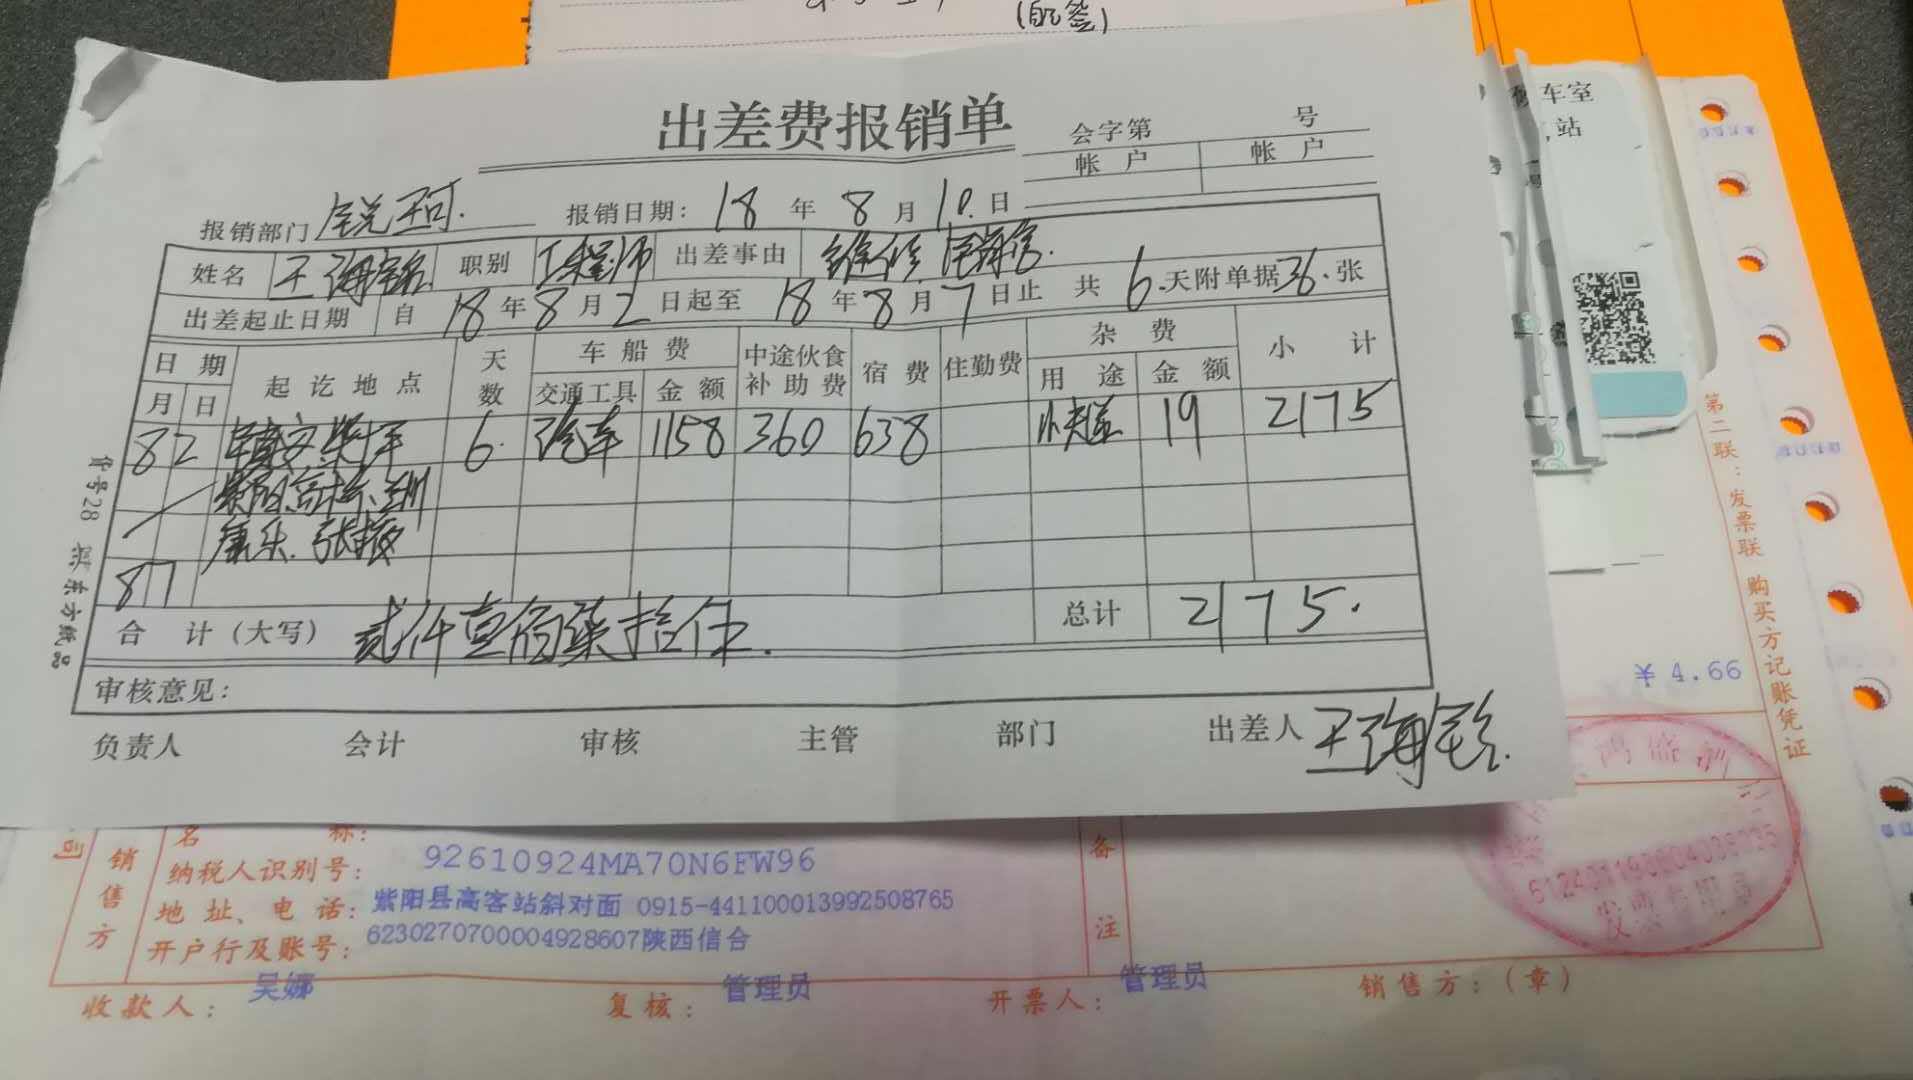 (自签)
出差费报销单
会字第 号
帐户 帐户
候车室
站
报销部门 锐珂. 报销日期: 18 年 8 月 10. 日
姓名 王海 职别 工程师 出差事由 维修
出差起止日期 自 18 年 8 月 2 日起至 18 年 8 月 7 日止 共 6. 天附单据 36. 张
日期 起讫地点 天数 车船费 中途伙食补助费 宿费 住勤费 杂费 小计
月 日 交通工具 金额 用途 金额
8 2 镇安 柞 6. 汽车 1158 360 638 19 2175
紫阳
康乐.
8 7
合计(大写) 贰仟壹佰柒拾伍. 总计 2175.
审核意见:
负责人 会计 审核 主管 部门 出差人 王海
货号28
第二联:发票联 购买方记账凭证
¥ 4.66
司
销售方
名称:
纳税人识别号: 92610924MA70N6FW96
地址、电话: 紫阳县高客站斜对面 0915-441100013992508765
开户行及账号: 6230270700004928607陕西信合
备注
发票专用章
收款人: 吴娜 复核: 管理员 开票人: 管理员 销售方:(章)